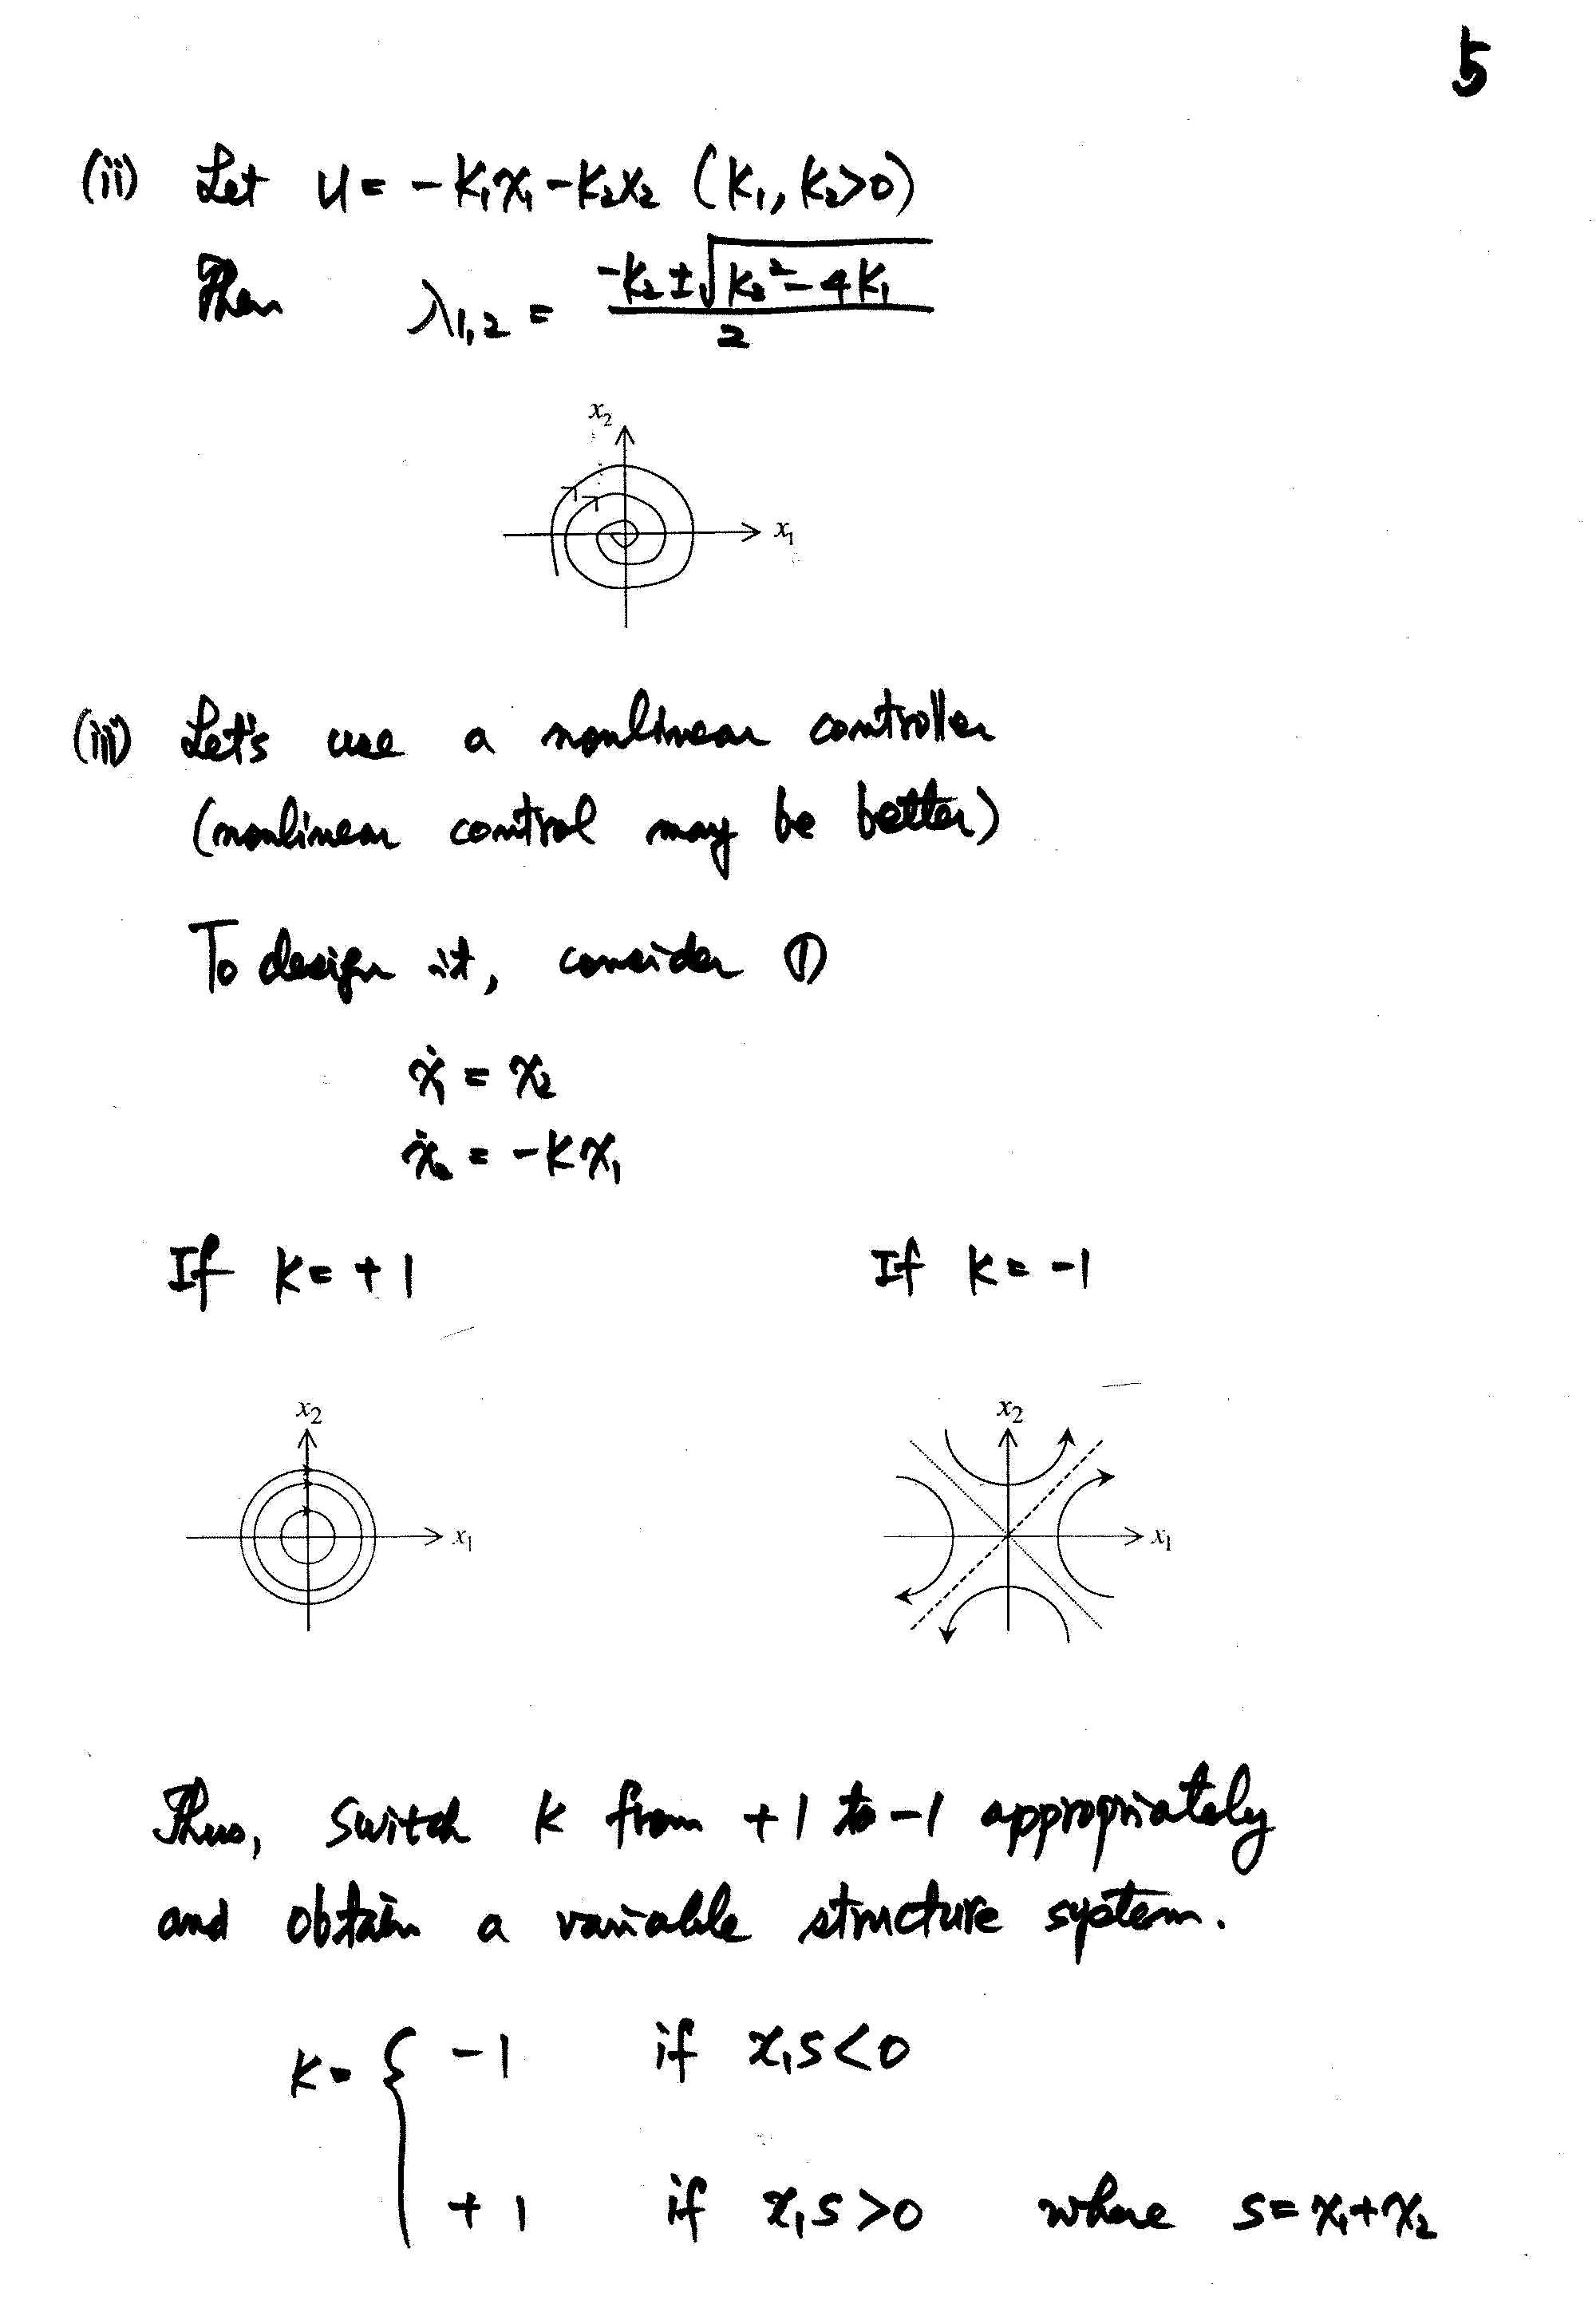 5
(ii) Let u = -k₁x₁ - k₂x₂ (k₁, k₂>0)
Then λ₁,₂ = (-k₂ ± √(k₂² - 4k₁)) / 2
x₂
x₁
(iii) Let's use a nonlinear controller
(nonlinear control may be better)
To design it, consider ①
ẋ₁ = x₂
ẋ₂ = -kx₁
If k = +1 If k = -1
x₂ x₂
x₁ x₁
Thus, switch k from +1 to -1 appropriately
and obtain a variable structure system.
k = { -1 if x₁s<0
+1 if x₁s>0 where s = x₁+x₂